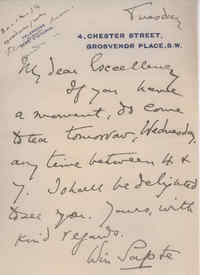 Tuesday
4, CHESTER STREET,
GROSVENOR PLACE, S.W.
My dear Excellency
If you have
a moment, do come
to tea tomorrow, Wednesday,
any time between 4 &
7. I shall be delighted
to see you. Yours, with
kind regards.